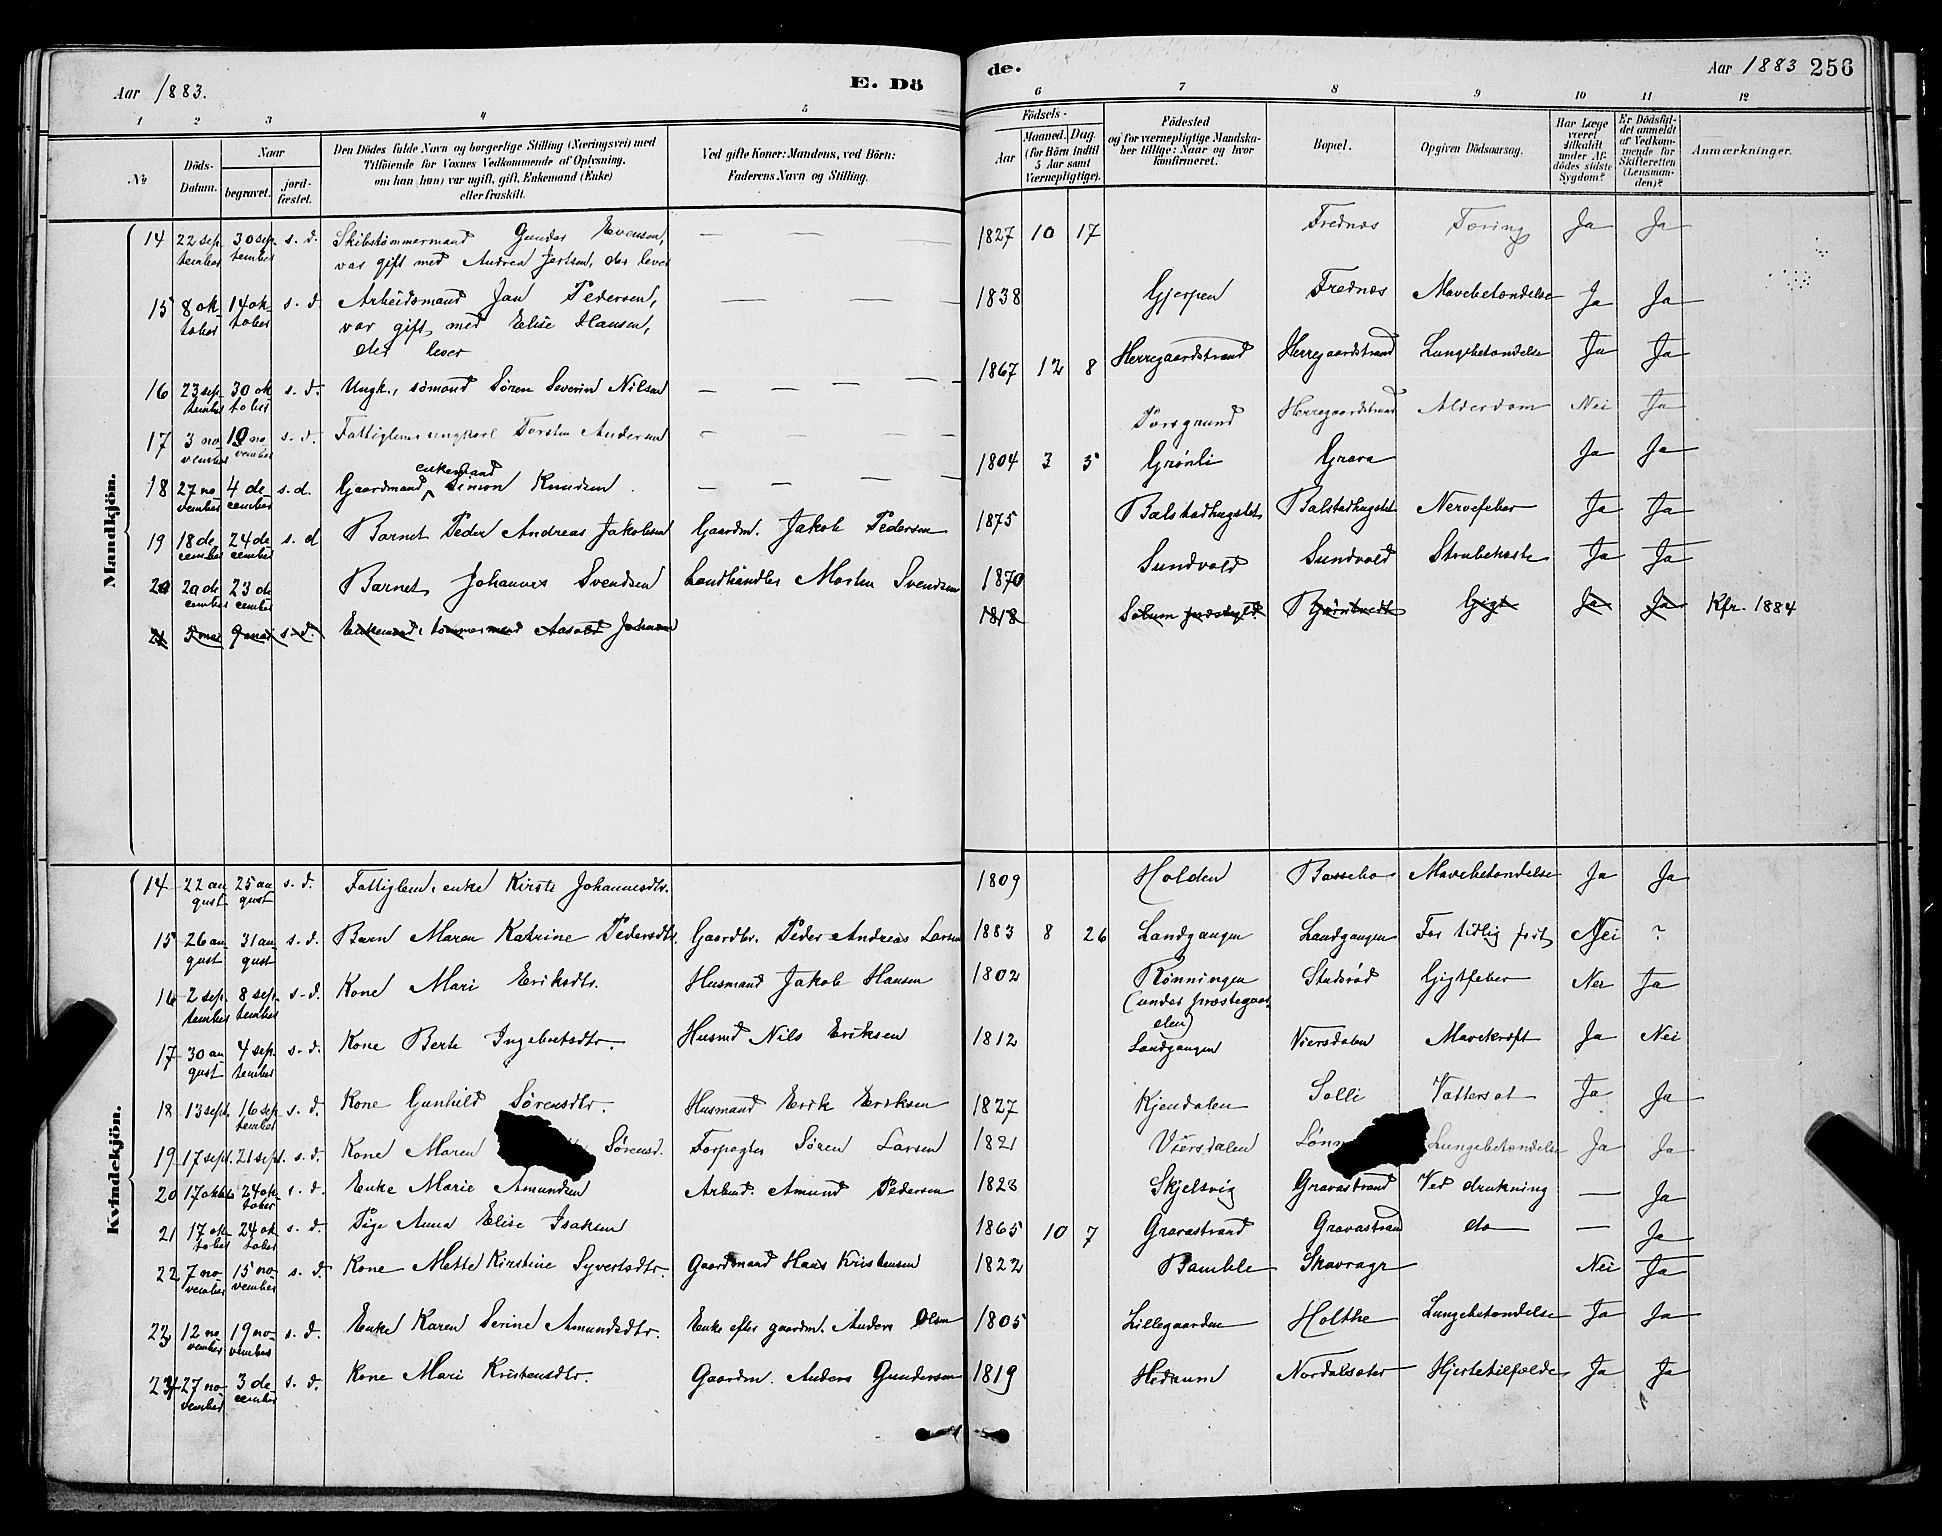 Aar 1883. E. Dö
de. Aar 1883 256
1 2 3 4 5
6 7 8 9 10 11 12
№ Döds-Datum. Naar begravet. jord-fæstet.
Den Dödes fulde Navn og borgerlige Stilling (Næringsvei) med
Tilföiende for Voxnes Vedkommende af Oplysning,
om han (hun) var ugift, gift, Enkemand (Enke)
eller fraskilt.
Ved gifte Koner: Mandens, ved Börn:
Faderens Navn og Stilling.
Födsels- Aar Maaned. Dag. (for Börn indtil 5 Aar samt Værnepligtige).
Födested
og for værnepligtige Mandska-
ber tillige: Naar og hvor
konfirmeret.
Bopæl.
Opgiven Dödsaarsag.
Har Læge været tilkaldt under Afdödes sidste Sygdom?
Er Dödsfaldet anmeldt af Vedkommende for Skifteretten (Lensmanden)?
Anmærkninger.
Mandkjön.
14 22 september 30 september s. d. Skibstømmermand Gunder Evensen, — — — 1827 10 17 Frednæs Tæring Ja Ja
var gift med Andrea Jertsen, der lever
15 8 oktober 14 oktober s. d. Arbeidsmand Jan Pedersen, — — — — 1838 Gjerpen Frednæs Mavebetændelse Ja Ja
var gift med Elise Hansen,
der lever
16 23 september 30 oktober s. d. Ungk., sømand Søren Severin Nilsen — — — — 1867 12 8 Herregaardstrand Herregaardstrand Lungebetændelse Ja Ja
17 3 november 10 november s. d. Fattiglem ungkarl Torsten Andersen — — — — Porsgrund Herregaardstrand Alderdom Nei Ja
18 27 november 4 december s. d. Gaardmand enkemand Simon Knudsen. — — — — 1804 3 5 Grønli Grava Ja Ja
19 18 december 24 december s. d Barnet Peder Andreas Jakobsen Gaardm. Jakob Pedersen 1875 Balstadhagstet Balstadhagstet Nervefeber Ja Ja
20 20 december 23 december Barnet Johannes Svendsen Landhandler Morten Svendsen 1870 Sundvold Sundvold Strubehoste Ja Ja
21 s. d. Enkemand, tømmermand Johnsen 1818 Solum præstegld. Bjørntvedt Gigt Ja Ja Kfr. 1884
Kvindekjön.
14 22 august 25 august s. d. Fattiglem, enke Kirsti Johannesdtr. 1809 Holden Bassebo Mavebetændelse Ja Ja
15 26 august 31 august s. d. Barn Maren Katrine Pedersdtr. Gaardbr. Peder Andreas Larsen 1883 8 26 Landgangen Landgangen For tidlig født Nei ?
16 2 september 8 september s. d. Kone Mari Eriksdtr. Husmand Jakob Hansen 1802 Rønningen Stadsrød Gigtfeber Nei Ja
(under præstegaarden)
17 30 august 4 september s. d. Kone Berte Ingebretsdtr. Husmd Nils Eriksen 1812 Landgangen Viersdalen Mavekræft Ja Nei
18 13 sept. 16 september s. d. Kone Gunhild Sørensdtr. Husmand Erik Eriksen 1827 Kjendalen Solli Vattersot Ja Ja
19 17 sept. 21 sept. s. d. Kone Maren Sørensd. Forpagter Søren Larsen 1821 Viersdalen Lønn Lungebetændelse Ja Ja
20 17 oktober 24 oktober s. d. Enke Marie Amundsen Arbmd. Amund Pedersen 1828 Skjelsvig Gravastrand Ved drukning — Ja
21 17 oktober 24 oktober s. d. Pige Anna Elise Isaksen 1865 10 7 Gravastrand Gravastrand do — — Ja
22 7 november 15 november s. d. Kone Mette Kirstine Syvertsdtr. Gaardmand Hans Kristensen 1822 Bamble Skavrager Nei Ja
23 12 november 19 november s. d. Enke Karen Serine Amundsdtr. Enke efter gaardm. Anders Olsen 1805 Lillegaarden Holthe Lungebetændelse Ja Ja
24 27 november 3 december s. d. Kone Mari Kristensdtr. Gaardm. Anders Gundersen 1819 Hedrum Nordalsæter Hjertetilfælde Ja Ja